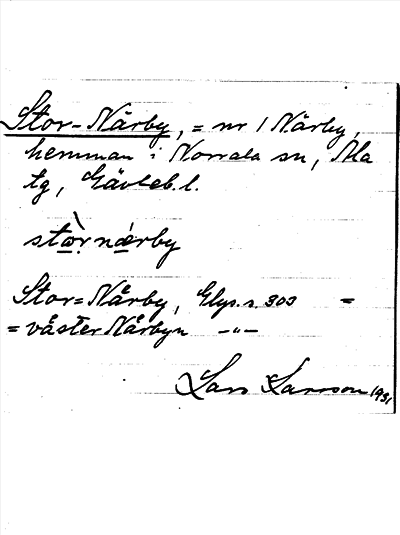 Stor-Närby, = nr 1 Närby,
hemman i Norrala sn, Ala
tg, Gävleb. l.
stò̱r nǽrby
Stor=Närby, Elgs. s. 303 =
= väster Närbyn -"-
Lars Larsson 1931